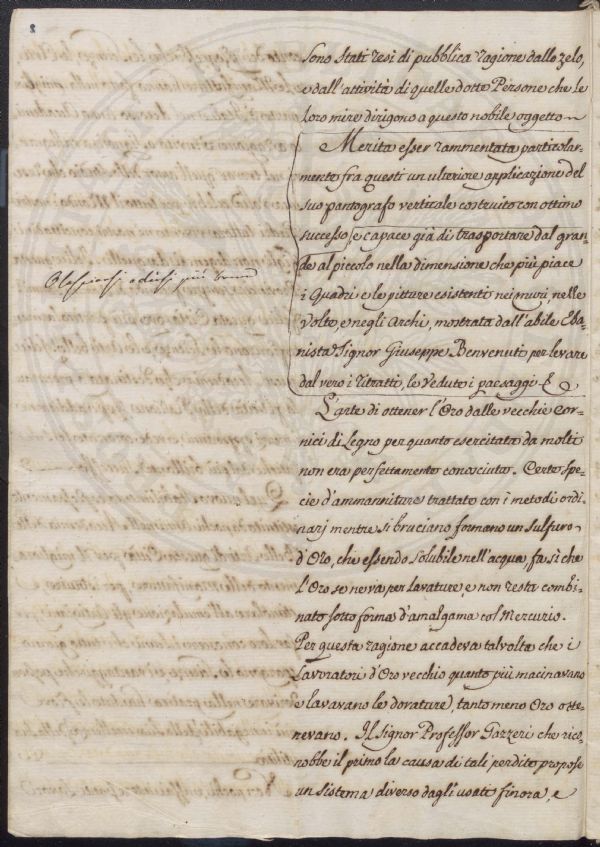 2
sono stati resi di pubblica ragione dallo zelo,
e dall'attività di quelle dotte Persone che le
loro mire dirigono a questo nobile oggetto
Merita esser rammentata particolar-
mente fra questi un ulteriore applicazione del
suo pantografo verticale costruito con ottimo
successo, e capace già di trasportare dal gran-
de al piccolo nella dimensione che più piace
i Quadri e le pitture esistenti nei muri, nelle
Volte, e negli Archi, mostrata dall'abile Eba-
nista Signor Giuseppe Benvenuti per levare
dal vero i ritratti, le Vedute i paesaggi &
L'arte di ottener l'Oro dalle vecchie Cor-
nici di Legno per quanto esercitata da molti
non era perfettamente conosciuta. Certe spe-
cie d'ammanniture trattate con i metodi ordi-
narj mentre si bruciano formano un sulfuro
d'Oro, che essendo solubile nell'acqua, fa sì che
l'Oro se ne va per lavature, e non resta combi-
nato sotto forma d'amalgama col Mercurio.
Per questa ragione accadeva talvolta che i
Lavoratori d'Oro vecchio quanto più macinavano
e lavavano le dorature, tanto meno Oro otte-
nevano. Il Signor Professor Gazzeri che rico-
nobbe il primo la causa di tali perdite propose
un sistema diverso dagli usati finora, e